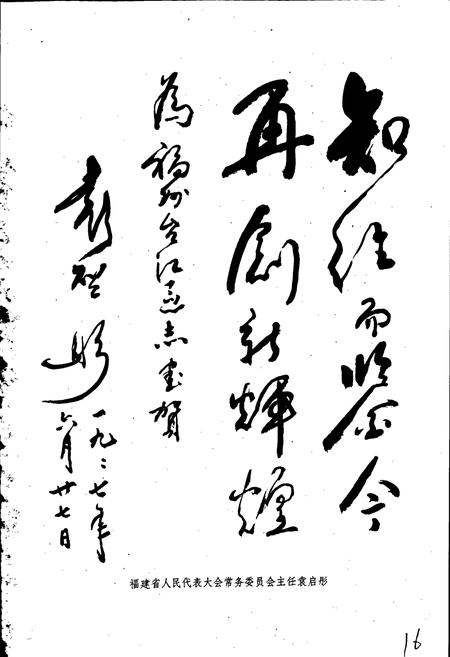 知往而鉴今
再创新輝煌
為福州台江区志书贺
袁启彤
一九九七年
六月廿七日
福建省人民代表大会常务委员会主任袁启彤
16